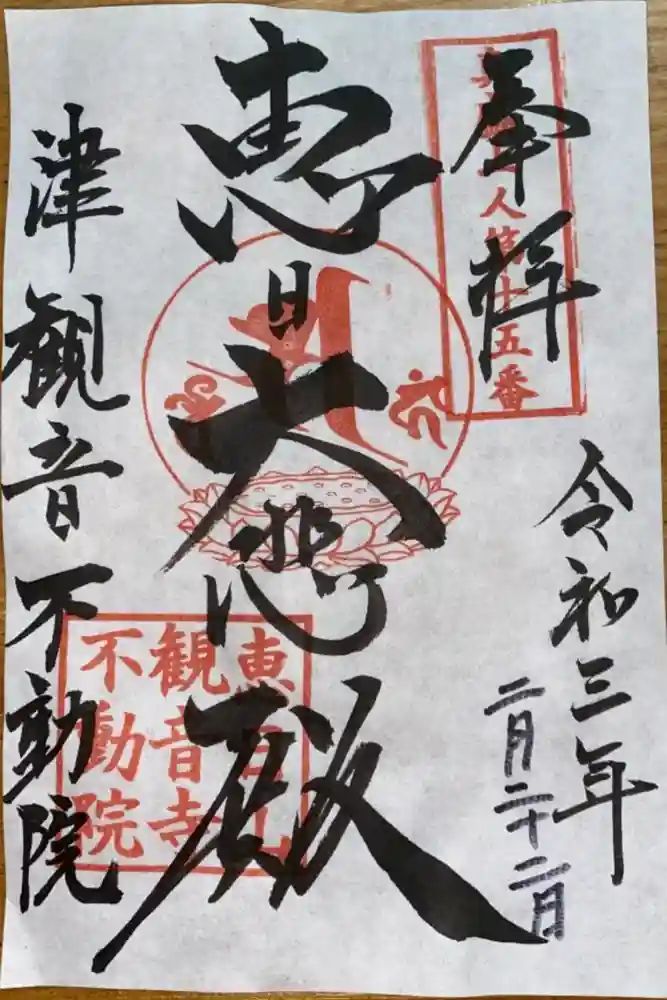 奉拝
第十五番
令和三年
二月二十二日
恵日大悲殿
恵日山
観音寺
不動院
津観音不動院